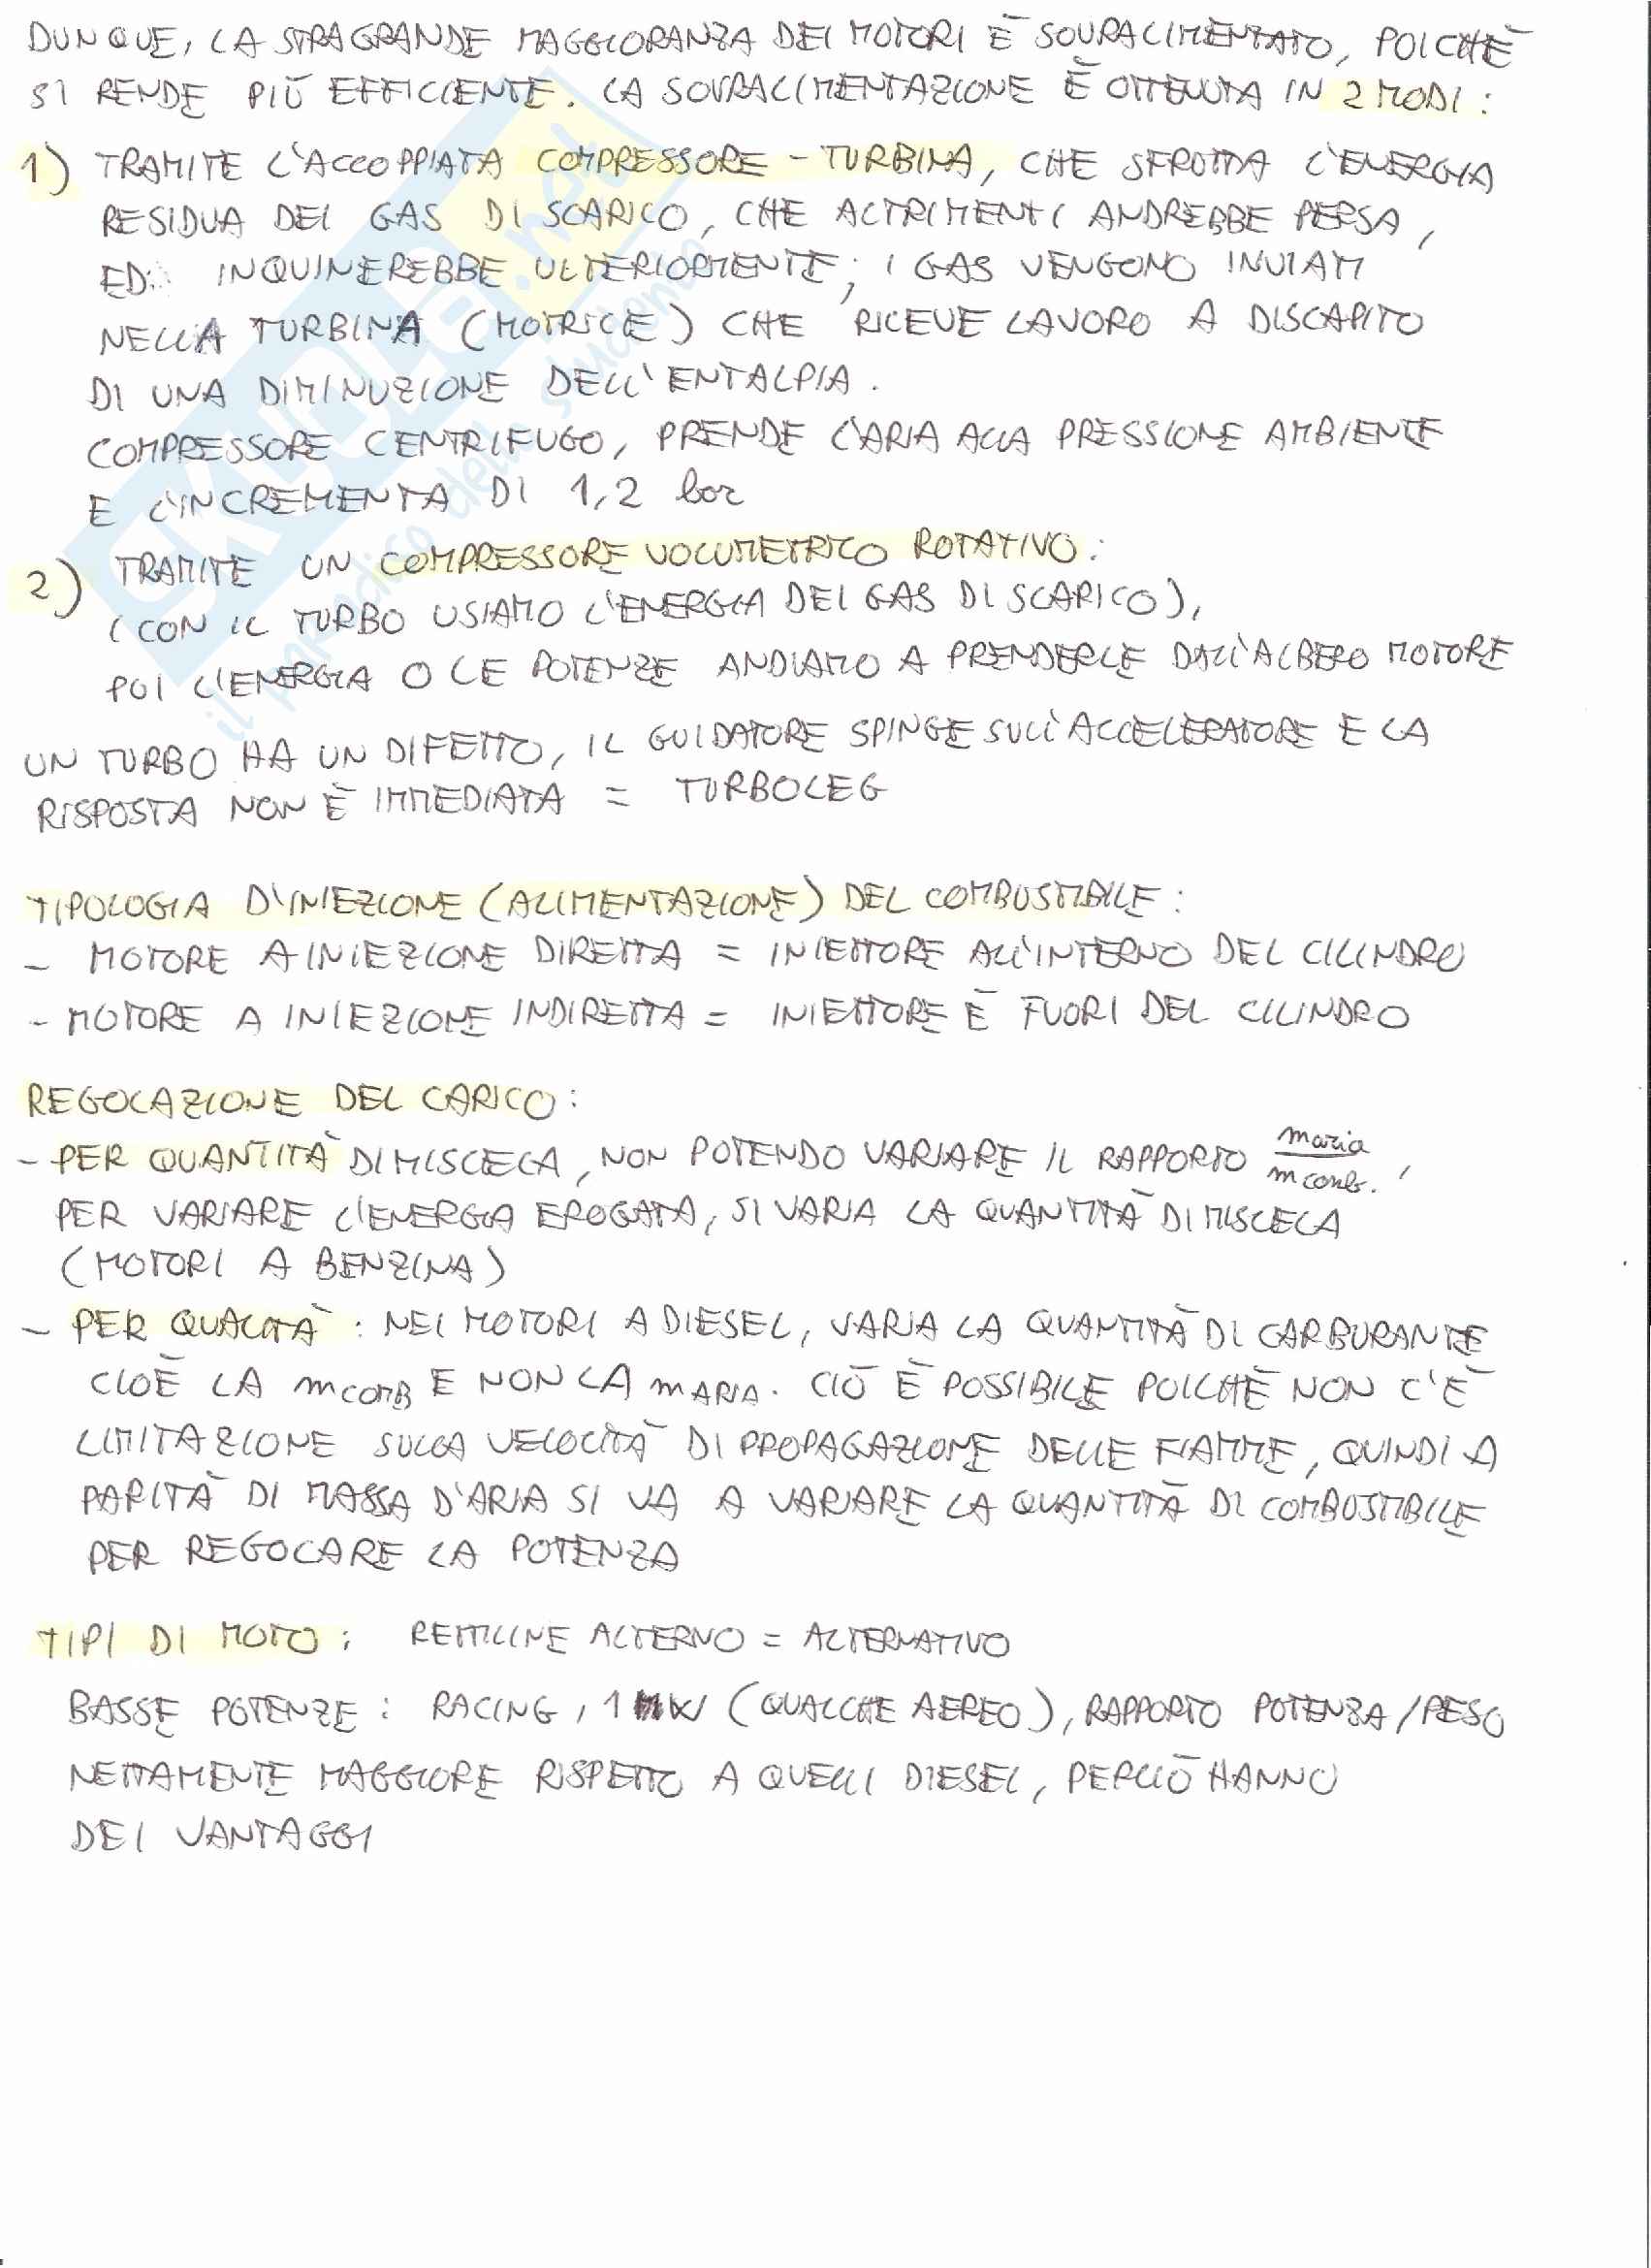 DUNQUE, LA STRAGRANDE MAGGIORANZA DEI MOTORI È SOVRALIMENTATO, POICHÈ
SI RENDE PIÙ EFFICIENTE. LA SOVRALIMENTAZIONE È OTTENUTA IN 2 MODI:
1) TRAMITE L'ACCOPPIATA COMPRESSORE - TURBINA, CHE SFRUTTA L'ENERGIA
RESIDUA DEI GAS DI SCARICO, CHE ALTRIMENTI ANDREBBE PERSA,
ED INQUINEREBBE ULTERIORMENTE; I GAS VENGONO INVIATI
NELLA TURBINA (MOTRICE) CHE RICEVE LAVORO A DISCAPITO
DI UNA DIMINUZIONE DELL'ENTALPIA.
COMPRESSORE CENTRIFUGO, PRENDE L'ARIA ALLA PRESSIONE AMBIENTE
E L'INCREMENTA DI 1,2 bar
2) TRAMITE UN COMPRESSORE VOLUMETRICO ROTATIVO:
(CON IL TURBO USIAMO L'ENERGIA DEI GAS DI SCARICO),
POI L'ENERGIA O LE POTENZE ANDIAMO A PRENDERLE DALL'ALBERO MOTORE
UN TURBO HA UN DIFETTO, IL GUIDATORE SPINGE SULL'ACCELERATORE E LA
RISPOSTA NON È IMMEDIATA = TURBOLEG
TIPOLOGIA D'INIEZIONE (ALIMENTAZIONE) DEL COMBUSTIBILE:
- MOTORE A INIEZIONE DIRETTA = INIETTORE ALL'INTERNO DEL CILINDRO
- MOTORE A INIEZIONE INDIRETTA = INIETTORE È FUORI DEL CILINDRO
REGOLAZIONE DEL CARICO:
- PER QUANTITÀ DI MISCELA, NON POTENDO VARIARE IL RAPPORTO maria / mcomb.,
PER VARIARE L'ENERGIA EROGATA, SI VARIA LA QUANTITÀ DI MISCELA
(MOTORI A BENZINA)
- PER QUALITÀ: NEI MOTORI A DIESEL, VARIA LA QUANTITÀ DI CARBURANTE
CIOÈ LA mCOMB E NON LA mARIA. CIÒ È POSSIBILE POICHÈ NON C'È
LIMITAZIONE SULLA VELOCITÀ DI PROPAGAZIONE DELLE FIAMME, QUINDI A
PARITÀ DI MASSA D'ARIA SI VA A VARIARE LA QUANTITÀ DI COMBUSTIBILE
PER REGOLARE LA POTENZA
TIPI DI MOTO: RETTILINE ALTERNO = ALTERNATIVO
BASSE POTENZE: RACING, 1 MW (QUALCHE AEREO), RAPPORTO POTENZA/PESO
NETTAMENTE MAGGIORE RISPETTO A QUELLI DIESEL, PERCIÒ HANNO
DEI VANTAGGI
SKUOLA.net
il paradiso dello studente